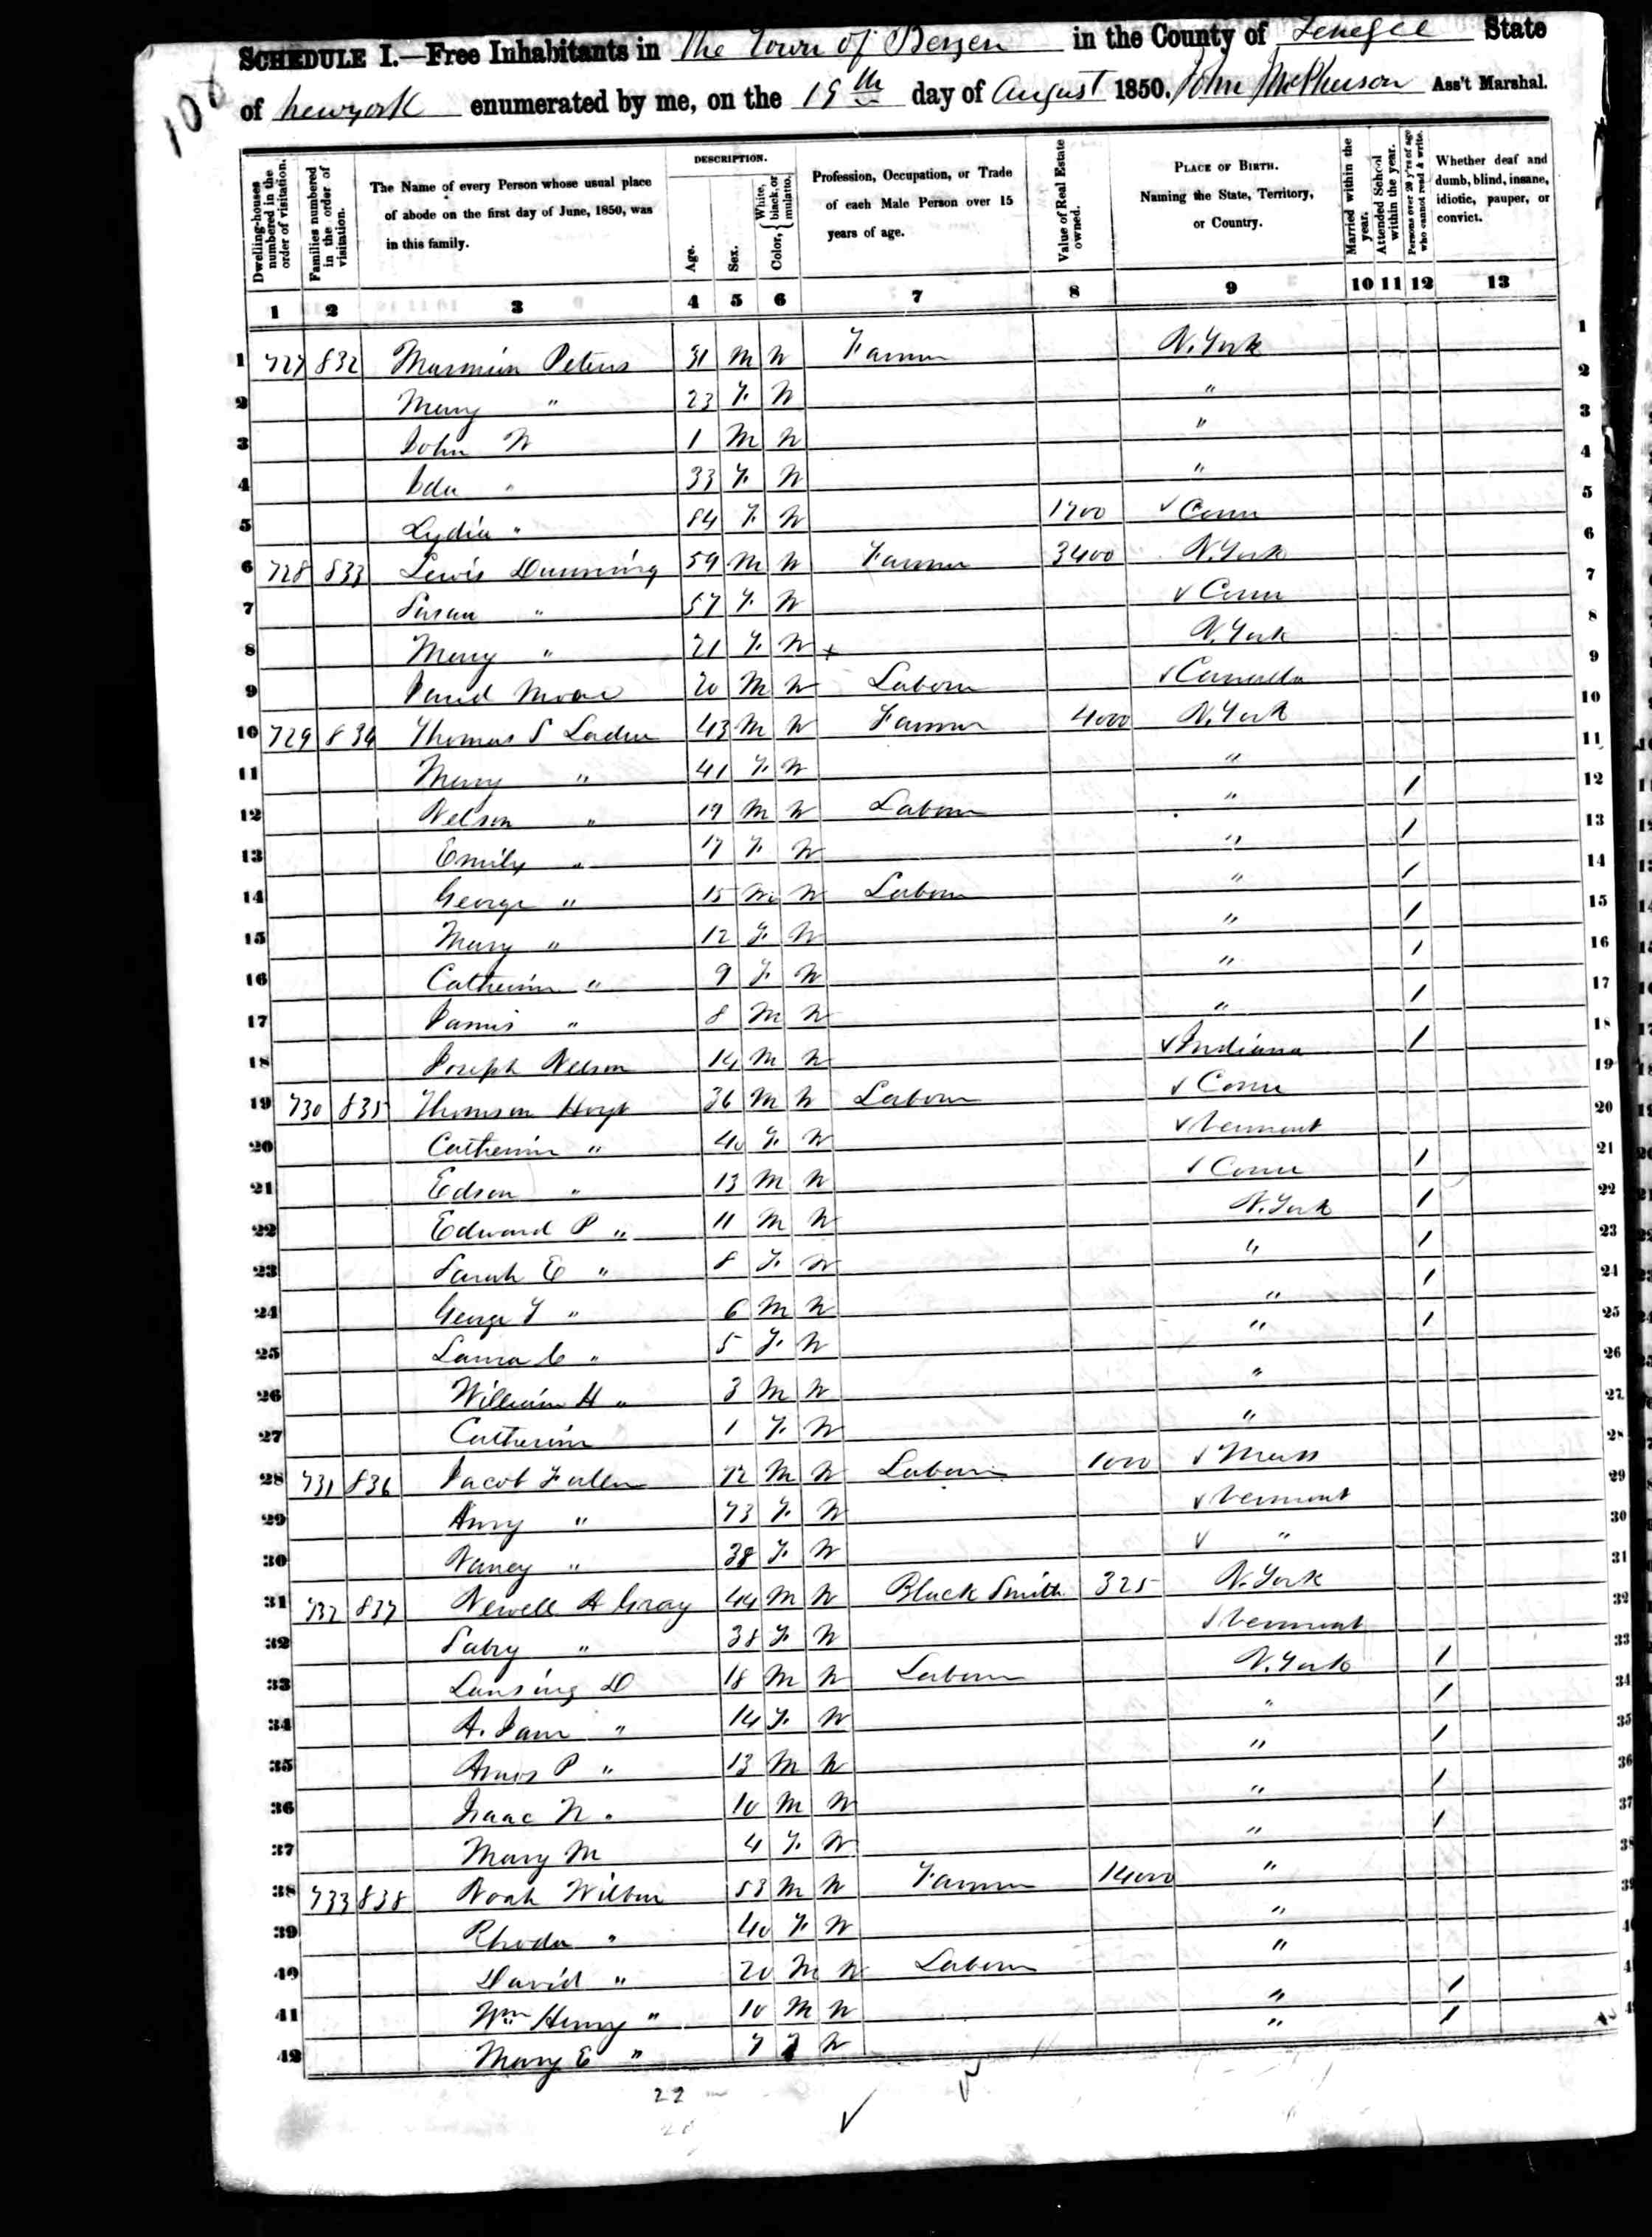 SCHEDULE I.—Free Inhabitants in The Town of Bergen in the County of Genesee State
of New york enumerated by me, on the 19th day of August 1850. John McPherson Ass't Marshal.
Dwelling-houses numbered in the order of visitation.
Families numbered in the order of visitation.
The Name of every Person whose usual place of abode on the first day of June, 1850, was in this family.
DESCRIPTION.
Age.
Sex.
Color, { White, black, or mulatto.
Profession, Occupation, or Trade of each Male Person over 15 years of age.
Value of Real Estate owned.
PLACE OF BIRTH. Naming the State, Territory, or Country.
Married within the year.
Attended School within the year.
Persons over 20 y'rs of age who cannot read & write.
Whether deaf and dumb, blind, insane, idiotic, pauper, or convict.
1 2 3 4 5 6 7 8 9 10 11 12 13
1 727 832 Peters 31 M W Farmer N. York 1
2 Mary " 23 F W " 2
3 John W 1 M W " 3
4 Ida " 33 F W " 4
5 Lydia " 84 F W 1700 ✓ Conn 5
6 728 833 Lewis Dunning 59 M W Farmer 3400 N. York 6
7 Susan " 57 F W ✓ Conn 7
8 Mary " 21 F W + N. York 8
9 David Moore 20 M W Laborer ✓ Canada 9
10 729 834 Thomas S Ladue 43 M W Farmer 4000 N. York 10
11 Mary " 41 F W " 11
12 Nelson " 19 M W Laborer " / 12
13 Emily " 17 F W " / 13
14 George " 15 M W Laborer " / 14
15 Mary " 12 F W " / 15
16 Catherine " 9 F W " / 16
17 James " 8 M W " / 17
18 Joseph Nelson 14 M W ✓ Indiana / 18
19 730 835 Thomson Hoyt 36 M W Laborer ✓ Conn 19
20 Catherine " 40 F W ✓ Vermont 20
21 Edson " 13 M W ✓ Conn / 21
22 Edward P " 11 M W N. York / 22
23 Sarah E " 8 F W " / 23
24 George T " 6 M W " / 24
25 Laura C " 5 F W " / 25
26 William H " 3 M W " 26
27 Catherine 1 F W " 27
28 731 836 Jacob Fuller 72 M W Laborer 1000 ✓ Mass 28
29 Amy " 73 F W ✓ Vermont 29
30 Nancy " 38 F W ✓ " 30
31 732 837 Newell A Gray 44 M W Black Smith 325 N. York 31
32 " 38 F W ✓ Vermont 32
33 Lansing D 18 M W Laborer N. York / 33
34 A. Jane " 14 F W " / 34
35 Amos P " 13 M W " / 35
36 Isaac N " 10 M W " / 36
37 Mary M 4 F W " / 37
38 733 838 Noah Wilbur 53 M W Farmer 14000 " 38
39 Rhoda " 40 F W " 39
40 David " 20 M W Laborer "
41 Wm Henry " 10 M W " /
42 Mary E " 7 F W " /
22